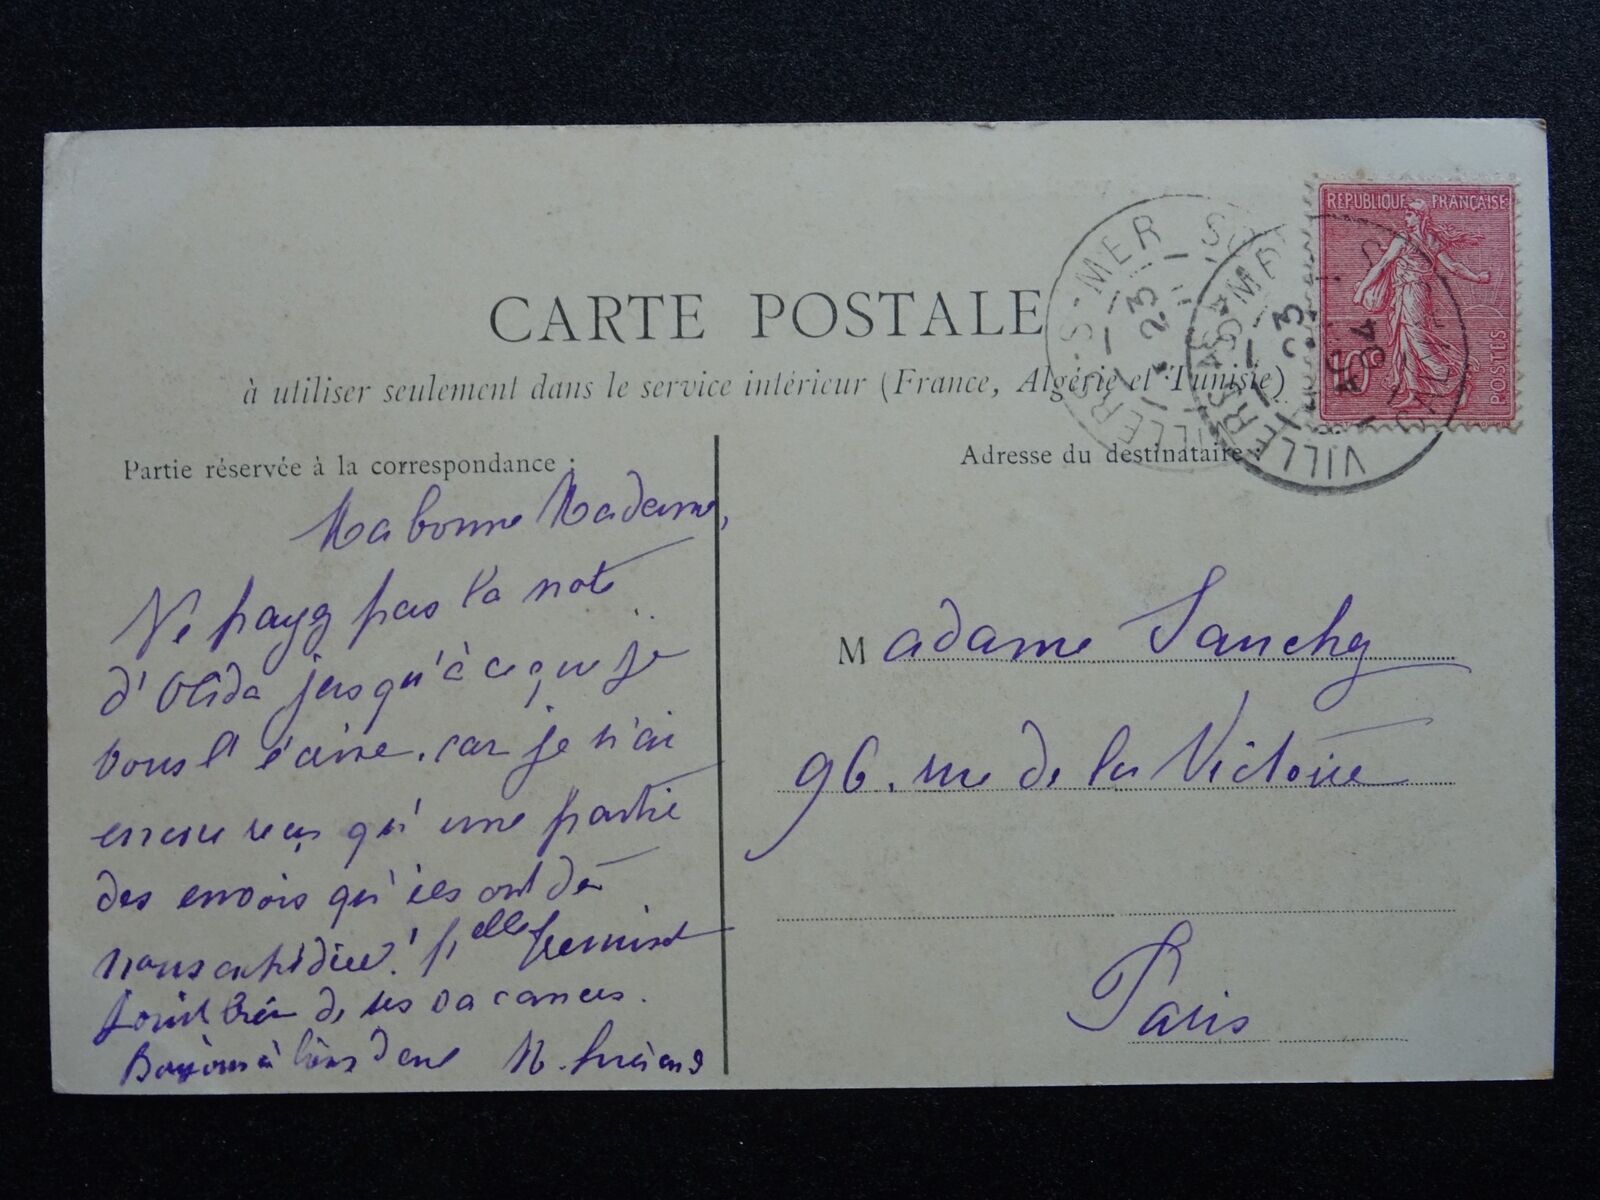 CARTE POSTALE
à utiliser seulement dans le service intérieur (France, Algérie et Tunisie)
RÉPUBLIQUE FRANÇAISE
10
POSTES
VILLERS-S-MER
23
VILLERS-S-MER
23
04
Partie réservée à la correspondance :
Ma bonne Madame,
Ne payez pas la note
d'Olida jusqu'à ce que je
vous l'écrive, car je n'ai
encore reçu qu'une partie
des envois qu'ils ont dû
nous expédier. Melle
jouit bien de ses vacances.
Bonjour à
Adresse du destinataire :
Madame Sanchez
96, rue de la Victoire
Paris